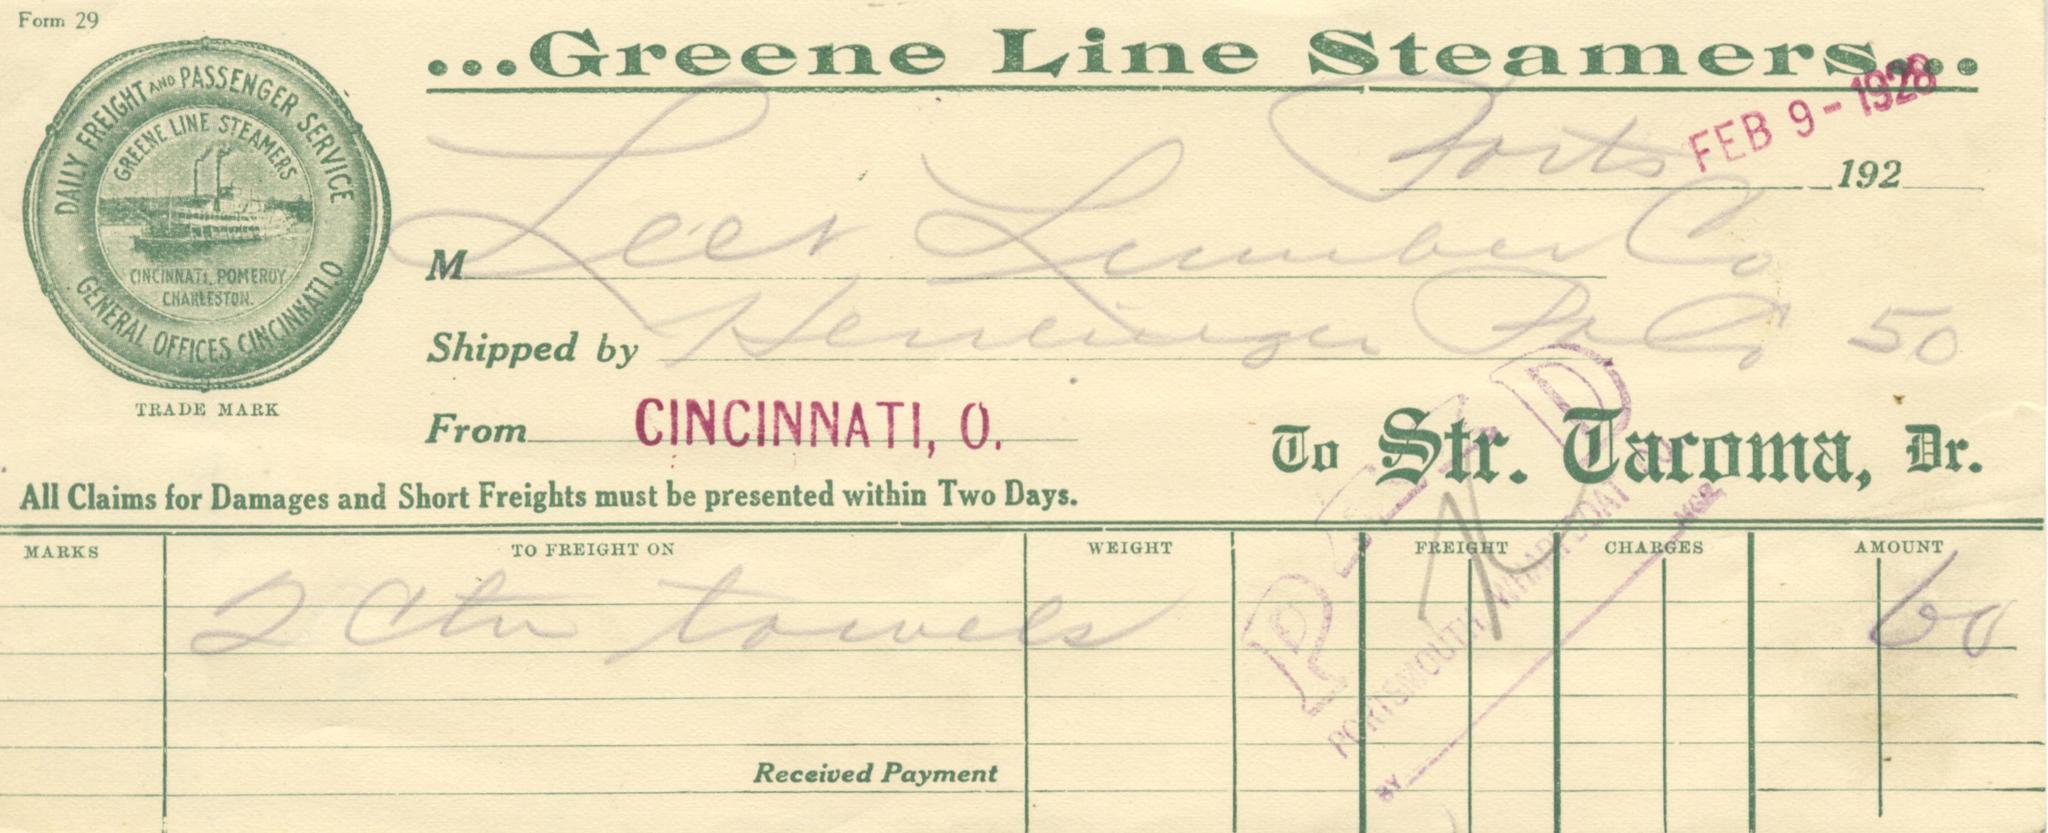 Form 29
...Greene Line Steamers...
DAILY FREIGHT AND PASSENGER SERVICE
GREENE LINE STEAMERS
CINCINNATI, POMEROY
CHARLESTON.
GENERAL OFFICES CINCINNATI.O
TRADE MARK
Ports FEB 9 - 1928 192
M Lees Lumber Co
Shipped by Co 50
From CINCINNATI, O.
To Str. Tacoma, Dr.
All Claims for Damages and Short Freights must be presented within Two Days.
MARKS TO FREIGHT ON WEIGHT FREIGHT CHARGES AMOUNT
2 Ctn towels 60
Received Payment
PAID
PORTSMOUTH WHARFBOAT CO
BY MGR